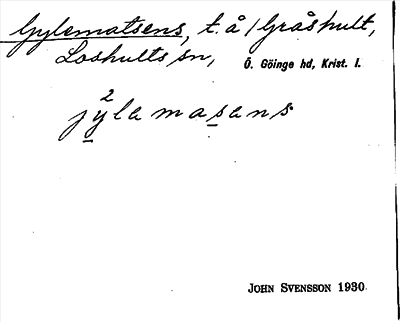 Gylematsens, t. å / Gråshult,
Loshults sn, Ö. Göinge hd, Krist. l.
2
jylemasans
JOHN SVENSSON 1930.